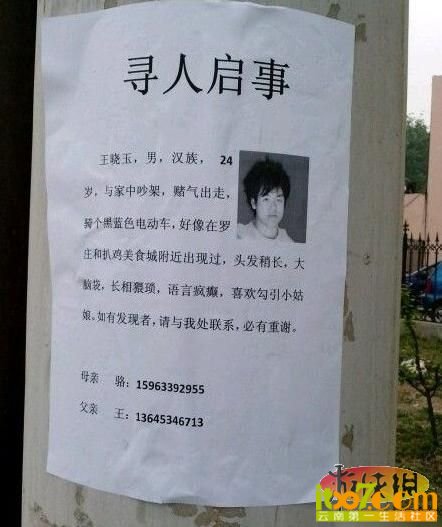 寻人启事
王晓玉，男，汉族，24
岁，与家中吵架，赌气出走，
骑个黑蓝色电动车，好像在罗
庄和扒鸡美食城附近出现过，头发稍长，大
脑袋，长相猥琐，语言疯癫，喜欢勾引小姑
娘。如有发现者，请与我处联系，必有重谢。
母亲 骆：15963392955
父亲 王：13645346713
云南第一生活社区